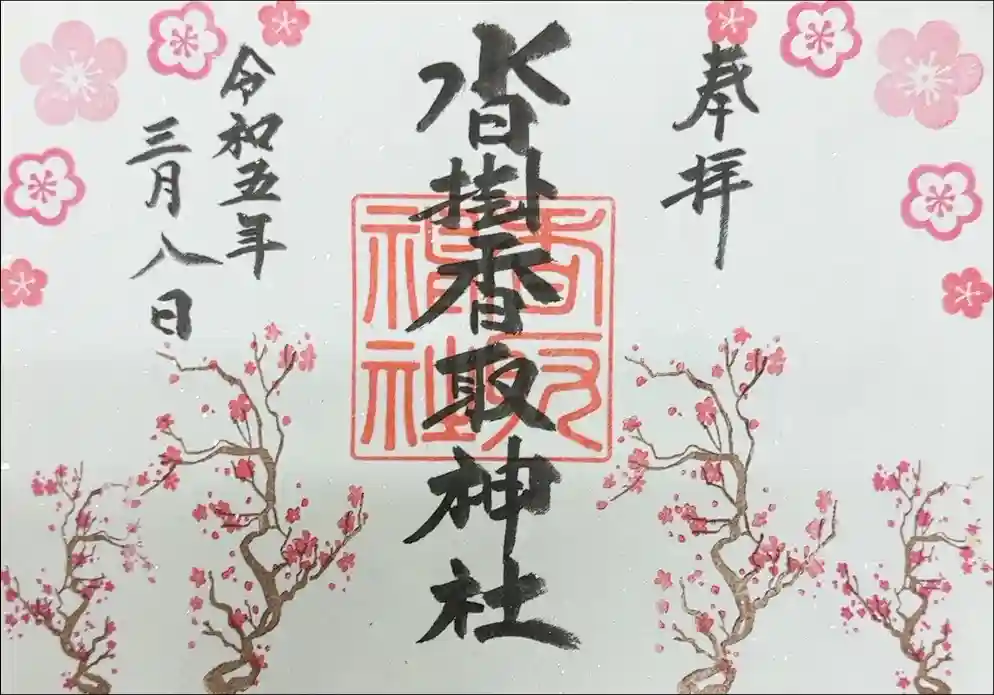 奉拝
沓掛香取神社
香取神社
令和五年
三月八日